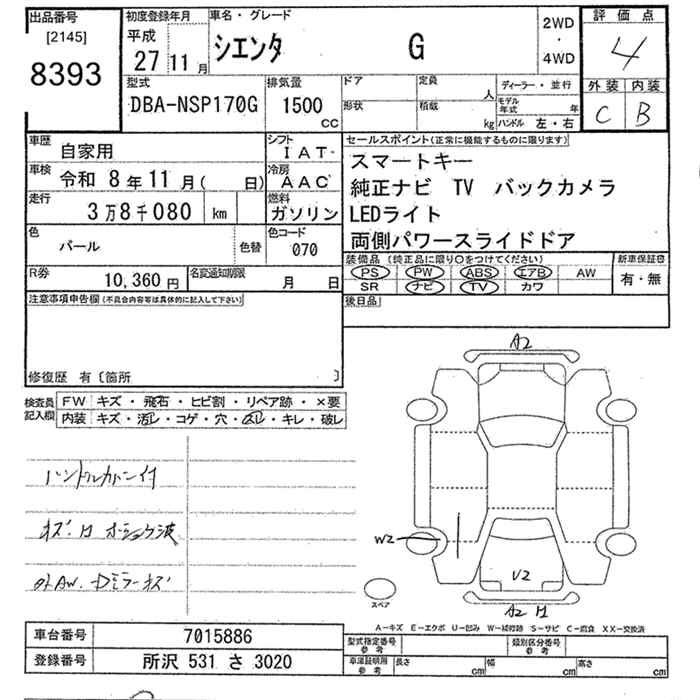 出品番号
[2145]
8393
初度登録年月
平成
27 11 月
車名・グレード
シエンタ G
2WD
・
4WD
評価点
4
外装 内装
C B
型式
DBA-NSP170G
排気量
1500
cc
ドア
定員
人
形状
積載
kg
ディーラー・並行
モデル年式 年
ハンドル 左・右
車歴
自家用
シフト
IAT
車検
令和 8年 11月( 日)
冷房
AAC
走行
3万8千080 km
燃料
ガソリン
色
パール
色替
色コード
070
R券
10,360 円
名変通知期限
月 日
セールスポイント(正常に機能するものに限ります)
スマートキー
純正ナビ TV バックカメラ
LEDライト
両側パワースライドドア
装備品(純正品に限り○をつけてください)
PS PW ABS エアB AW
SR ナビ TV カワ
新車保証書
有・無
後日品
注意事項申告欄(不具合内容等は具体的に記入して下さい)
修復歴 有〔箇所 〕
検査員
記入欄
FW キズ・飛石・ヒビ割・リペア跡・×要
内装 キズ・汚れ・コゲ・穴・スレ・キレ・破レ
ハンドルカバー付
A2
W2
V2
A2
スペア
A-キズ E-エクボ U-凹み W-補修跡 S-サビ C-腐食 XX-交換済
車台番号
7015886
登録番号
所沢 531 さ 3020
型式指定番号
参考
類別区分番号
参考
車庫証明用
参考
長さ cm
幅 cm
高さ cm